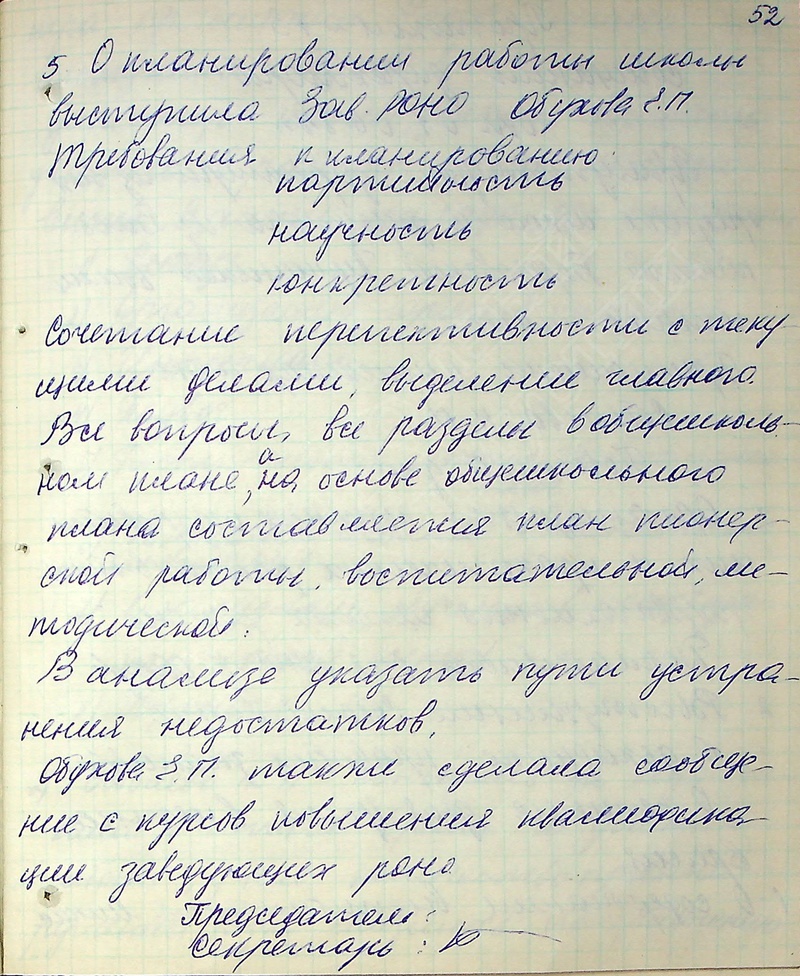 52
5 О планировании работы школы
выступила Зав. роно Обухова Е.П.
Требования к планированию
партийность
научность
конкретность
Сочетание перспективности с теку-
щими делами, выделение главного.
Все вопросы, все разделы в общешколь-
ном плане, а на основе общешкольного
плана составляется план пионер-
ской работы, воспитательной, ме-
тодической.
В анализе указать пути устра-
нения недостатков,
Обухова Е.П. также сделала сообще-
ние с курсов повышения квалифика-
ции заведующих роно
Председатель:
Секретарь: